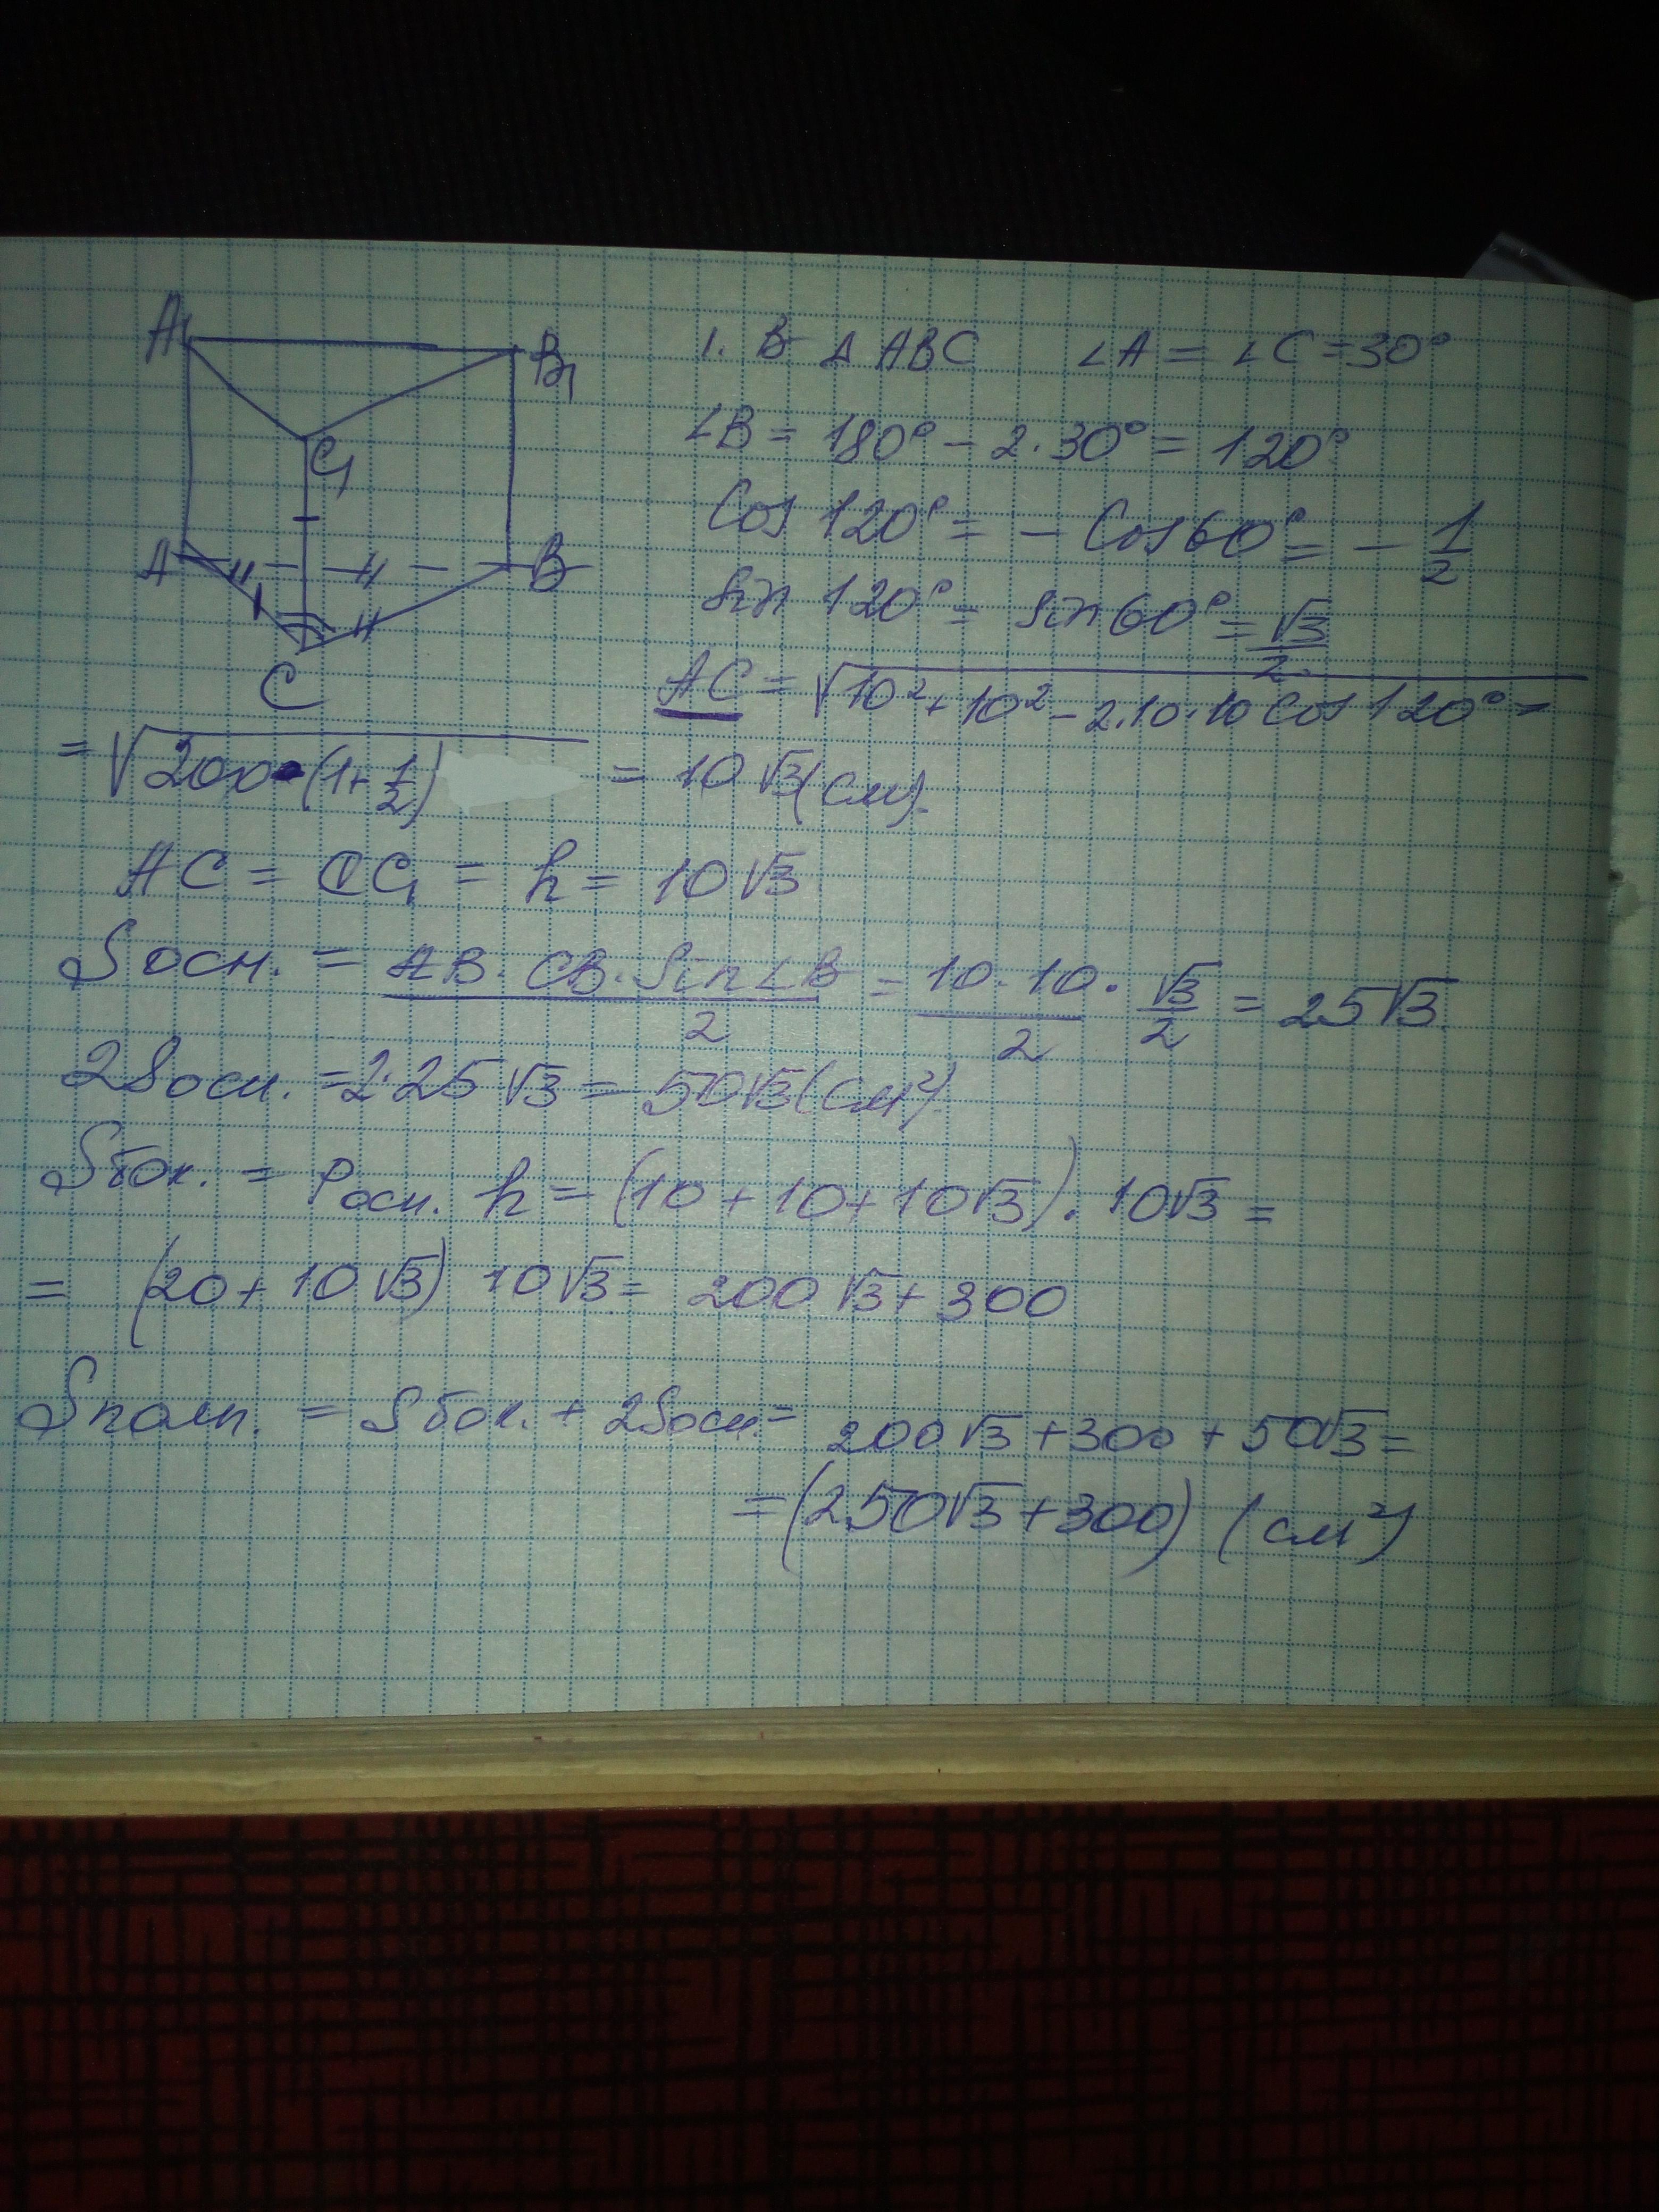 A₁
B₁
C₁
A
B
C
1. В Δ ABC ∠A = ∠C = 30°
∠B = 180° - 2·30° = 120°
Cos 120° = - Cos 60° = - 1/2
Sin 120° = sin 60° = √3/2
AC = √(10² + 10² - 2·10·10 Cos 120°) =
= √(200·(1+1/2)) = 10√3 (см).
AC = CC₁ = h = 10√3
Sосн. = (AB · CB · Sin∠B)/2 = (10 · 10)/2 · √3/2 = 25√3
2Sосн. = 2·25√3 = 50√3 (см²).
Sбок. = Pосн. h = (10 + 10 + 10√3) · 10√3 =
= (20 + 10√3) 10√3 = 200√3 + 300
Sполн. = Sбок. + 2Sосн. = 200√3 + 300 + 50√3 =
= (250√3 + 300) (см²)